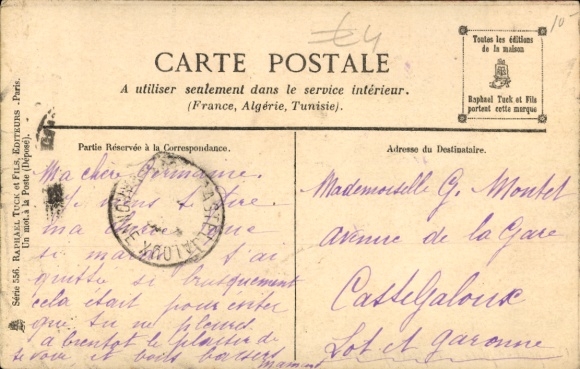 10-
CARTE POSTALE
A utiliser seulement dans le service intérieur.
(France, Algérie, Tunisie).
Toutes les éditions
de la maison
Raphael Tuck et Fils
portent cette marque
Partie Réservée à la Correspondance.
Adresse du Destinataire.
Série 556. RAPHAEL TUCK et FILS, EDITEURS. Paris.
Un mot à la Poste (Déposé).
CASTELJALOUX
Ma chère Germaine.
Je vous
ma
si t'ai
quitté si brusquement
cela était pour éviter
que tu ne pleures
à bientôt le plaisir de
te voir et bons baisers
maman
Mademoiselle G. Montet
avenue de la Gare
Castelgaloux
Lot et Garonne